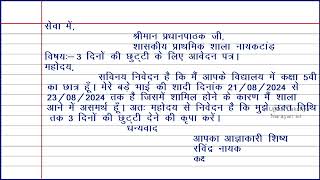 सेवा में,
श्रीमान प्रधानपाठक जी,
शासकीय प्राथमिक शाला नायकटांड
विषयः- 3 दिनों की छुट्टी के लिए आवेदन पत्र।
महोदय,
सविनय निवेदन है कि मैं आपके विद्यालय में कक्षा 5वी
का छात्र हूँ। मेरे बड़े भाई की शादी दिनांक 21/08/2024 से
23/08/2024 तक है जिसमें शामिल होने के कारण मैं शाला
आने में असमर्थ हूँ। अतः महोदय से निवेदन है कि मुझे उक्त तिथि
तक 3 दिनों की छुट्टी देने की कृपा करें।
धन्यवाद
आपका आज्ञाकारी शिष्य
रविंद्र नायक